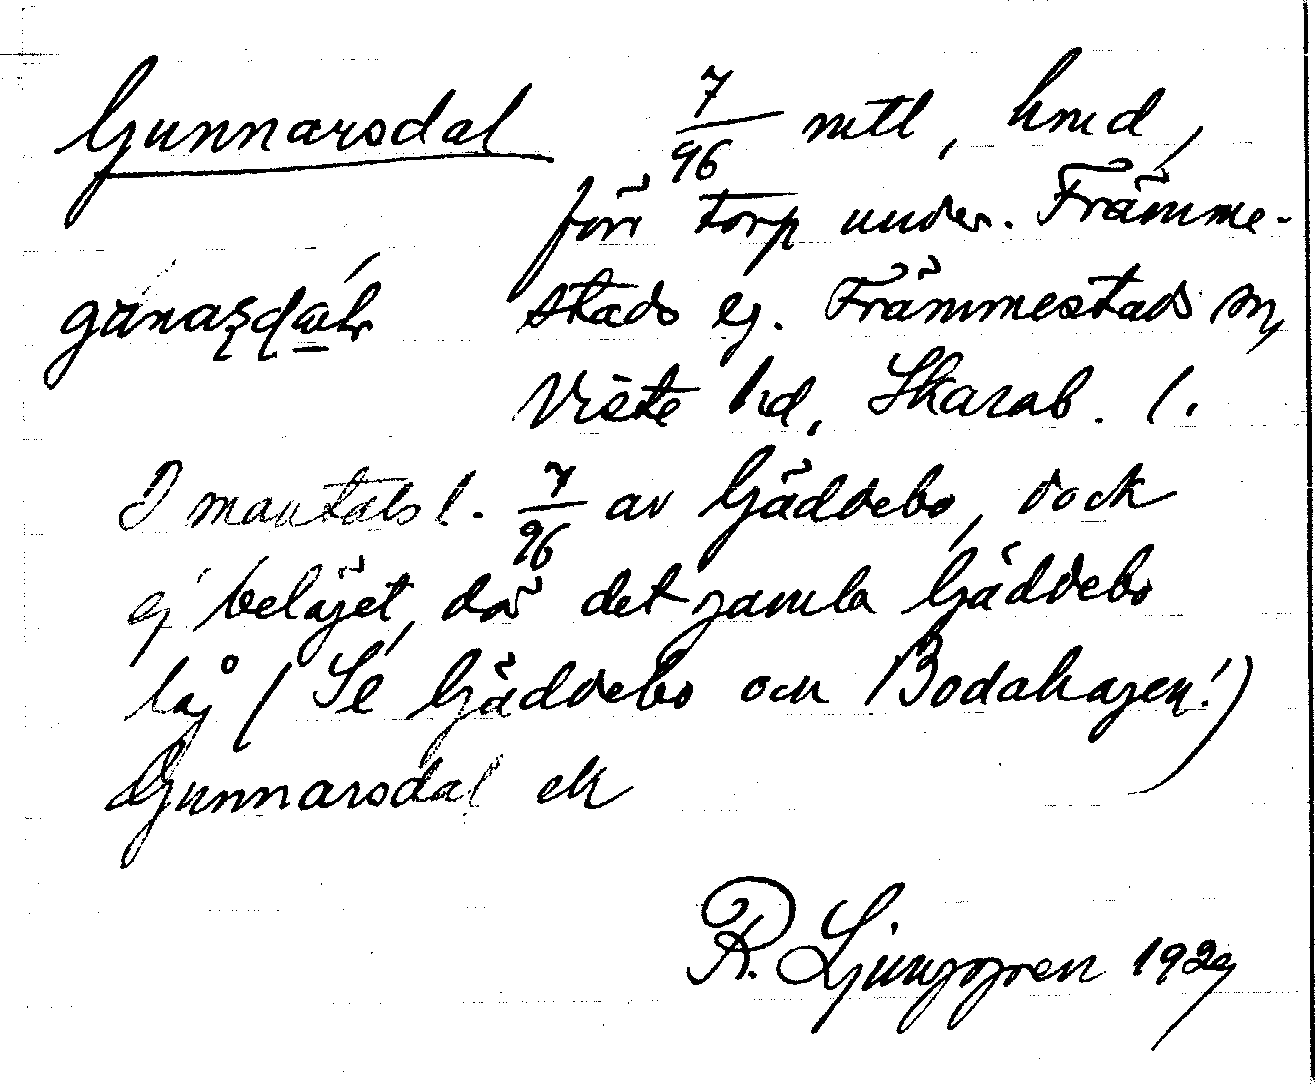 Gunnarsdal 7/96 mtl, hmd,
förr torp under Främme-
stads eg. Främmestads sn,
Viste hd, Skarab. l.
I mantals l. 7/96 av Gäddebo, dock
ej beläget, där det gamla Gäddebo
låg (Se Gäddebo och Bodahagen!)
Gunnarsdal ek
R. Ljunggren 1929